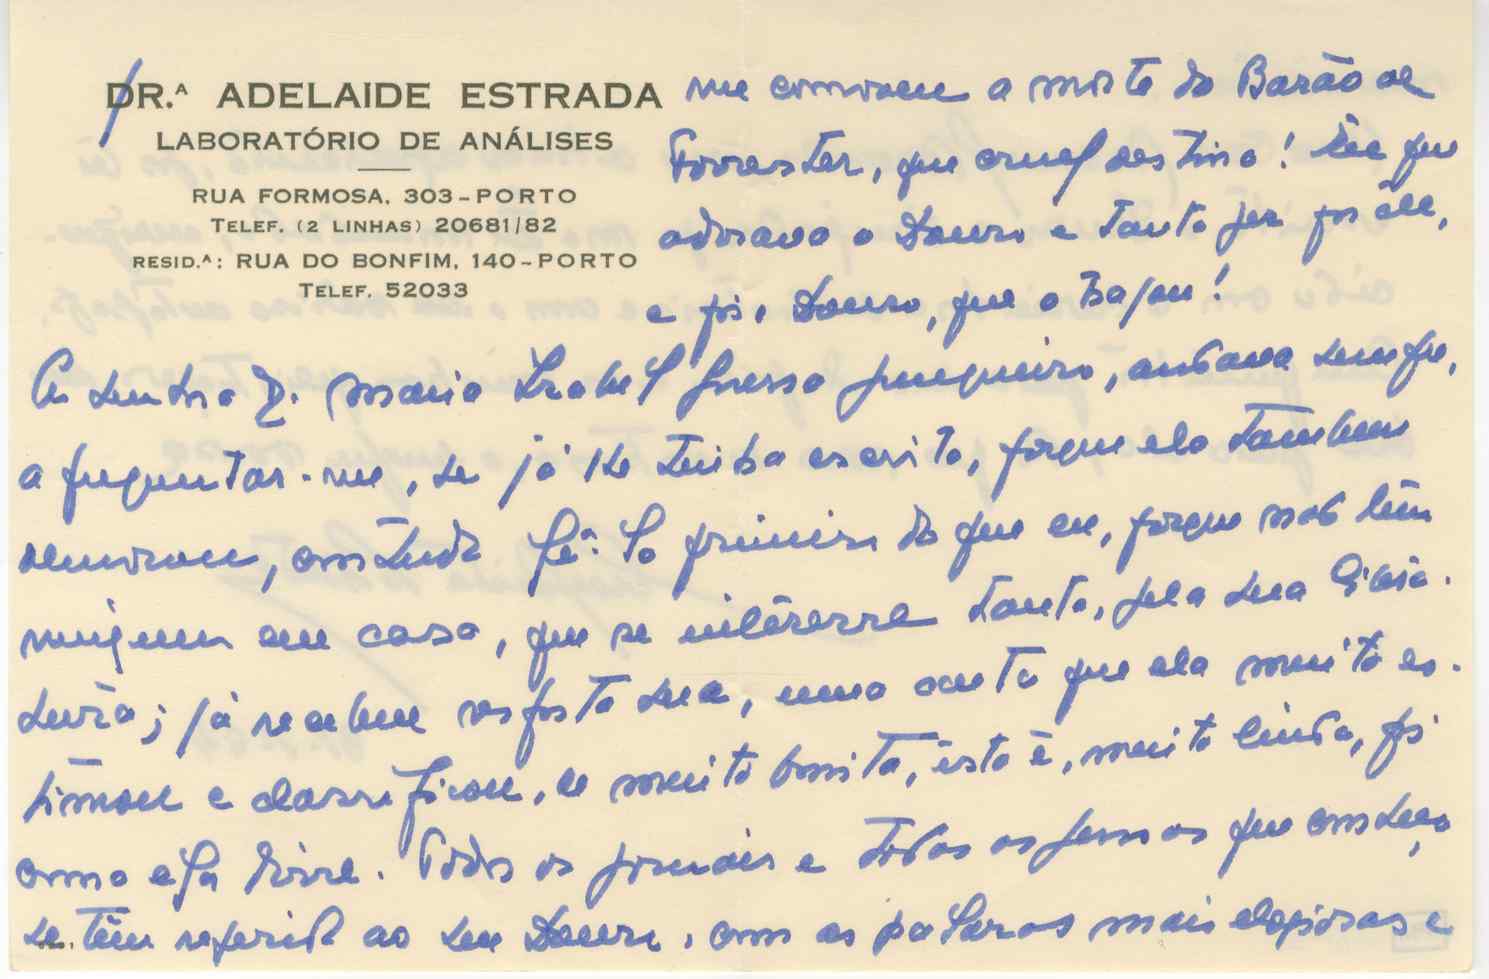 DR.ᴬ ADELAIDE ESTRADA
LABORATÓRIO DE ANÁLISES
RUA FORMOSA, 303-PORTO
TELEF. (2 LINHAS) 20681/82
RESID.ᴬ: RUA DO BONFIM, 140-PORTO
TELEF. 52033
me comoveu a morte do Barão de
Forrester, que cruel destino! Êle que
adorava o Douro e tanto fez por êle,
e foi, Douro, que o tragou!
A senhora D. Maria Izabel Guerra Junqueiro, andava sempre,
a preguntar-me, se já lhe tinha escrito, porque ela tambem
demorou, contudo lê-lo primeiro do que eu, porque não têm
ninguem em casa, que se interesse tanto, pela sua
já recebeu resposta sua, uma carta que ela muito es-
timou e classificou, de muito bonita, isto é, muito linda, foi
como ela disse. Todos os jornais e todas as pessoas que conheço,
se têm referido ao seu Douro, com as palavras mais elogiosas e